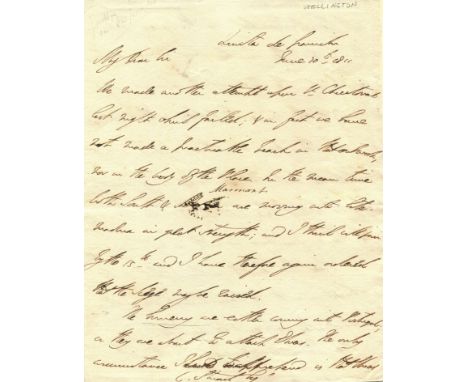 WELLINGTON
Quinta de
June 10th 1811
My Dear Sir
We made another attempt upon St Christoval
last night which failed, & in fact we have
not made a practicable breach in that outwork,
nor in the body of the Place. In the mean time
Marmont
both Soult & are moving into Estre
madura in great strength; and I think will join
by the 15th and I have therefore again ordered
that the Siege may be raised.
The Enemy are either coming into Portugal,
or they are about to attack Elvas. The only
circumstance I apprehend is that
C. Stuart Esq